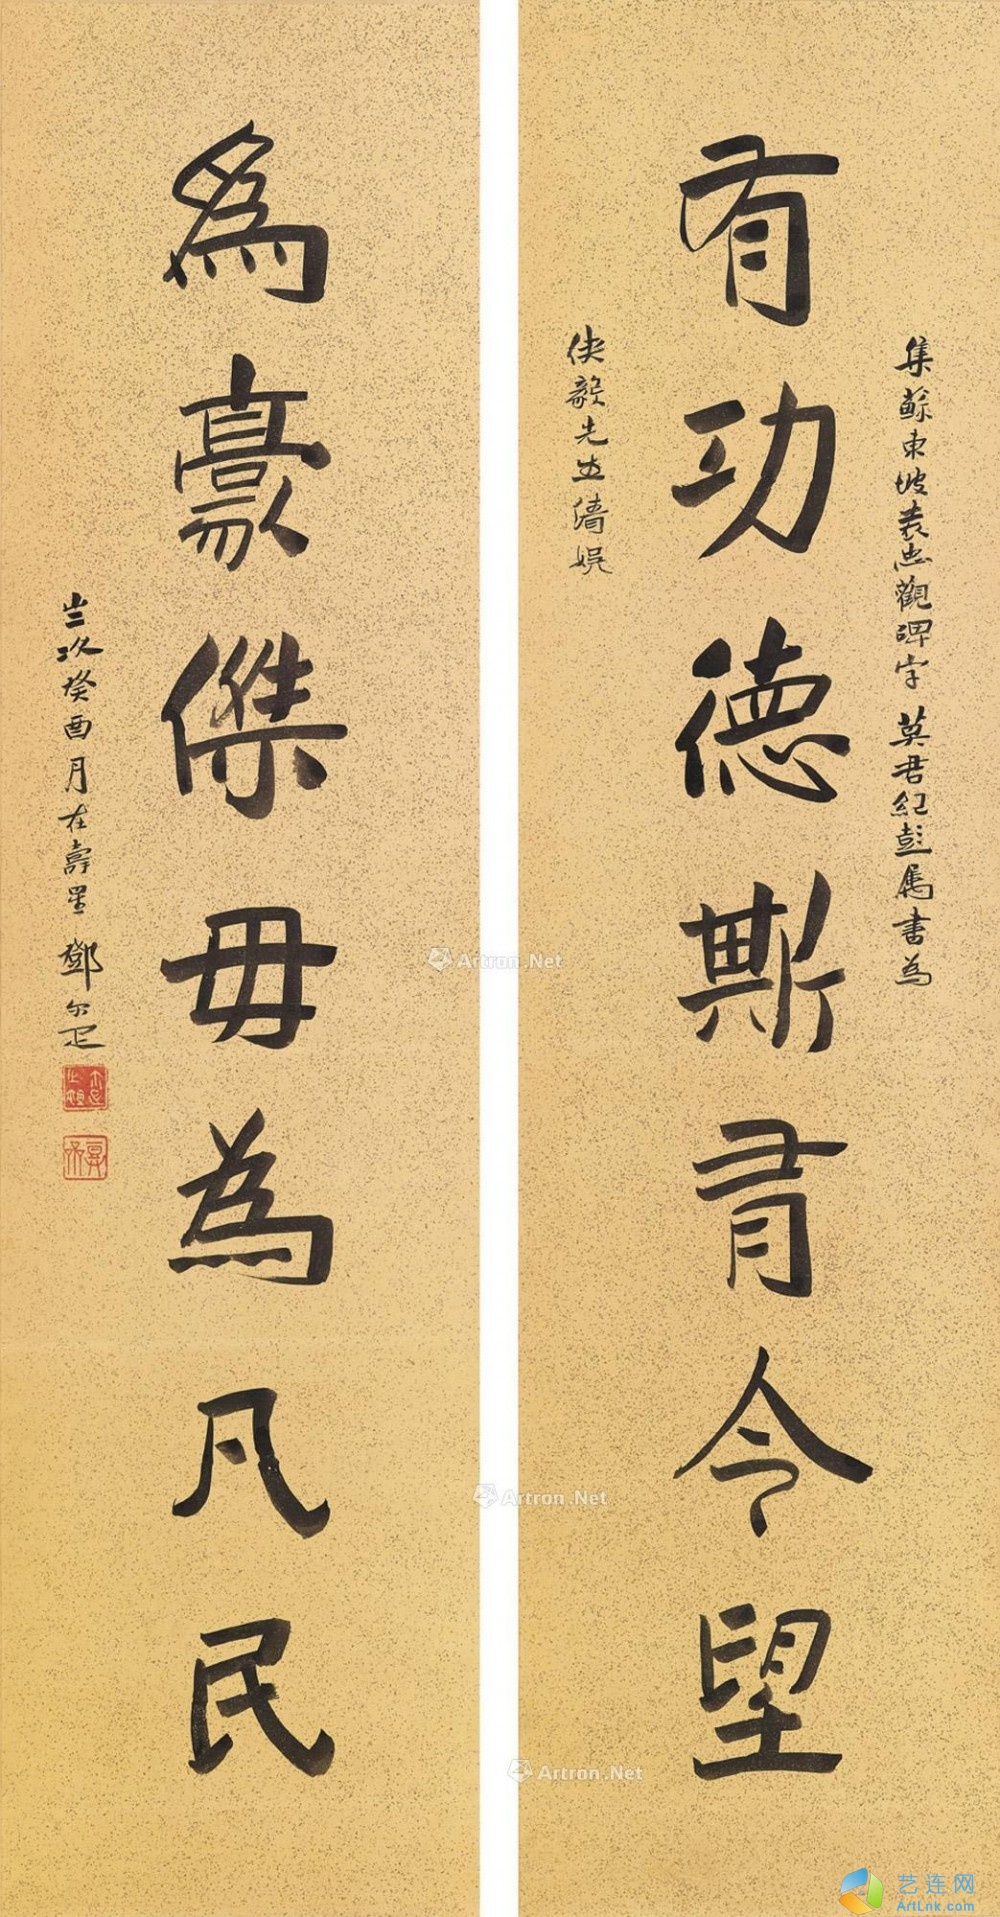 集蘇東坡表忠觀碑字 莫君紀彭属書為
有功德斯有令望
俠毅先生清娛
為豪傑毋為凡民
亗次癸酉月在壽星 鄧尔疋
Artron.Net
Artron.Net
Artron.Net
艺连网
ArtLnk.com